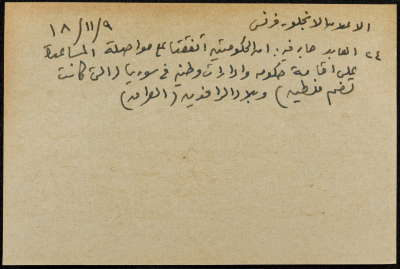 الاعلان الانجلو فرنسي ١٨/١١/٩
٢٤ ... جاء فيه: ان الحكومتين اتفقتا على مواصلة المساعدة
على اقامة حكومه وادارات وطنيه في سوريا (التي كانت
تضم فلسطين) وبلاد الرافدين (العراق)